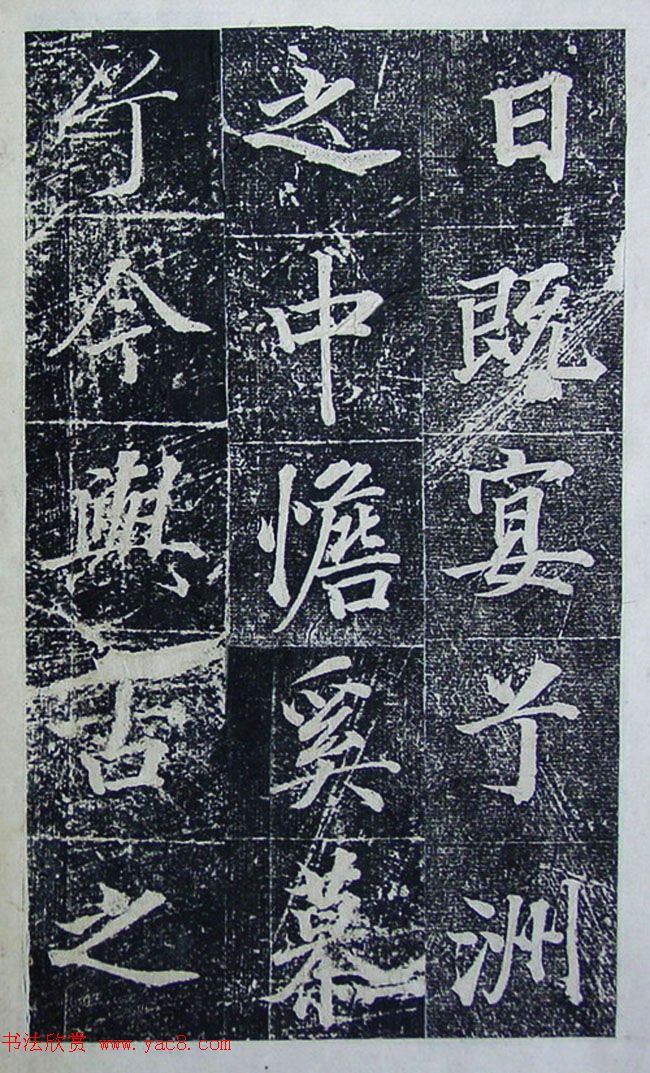 日既宴兮洲
之中憺奚慕
兮今與古之
书法欣赏 www.yac8.com